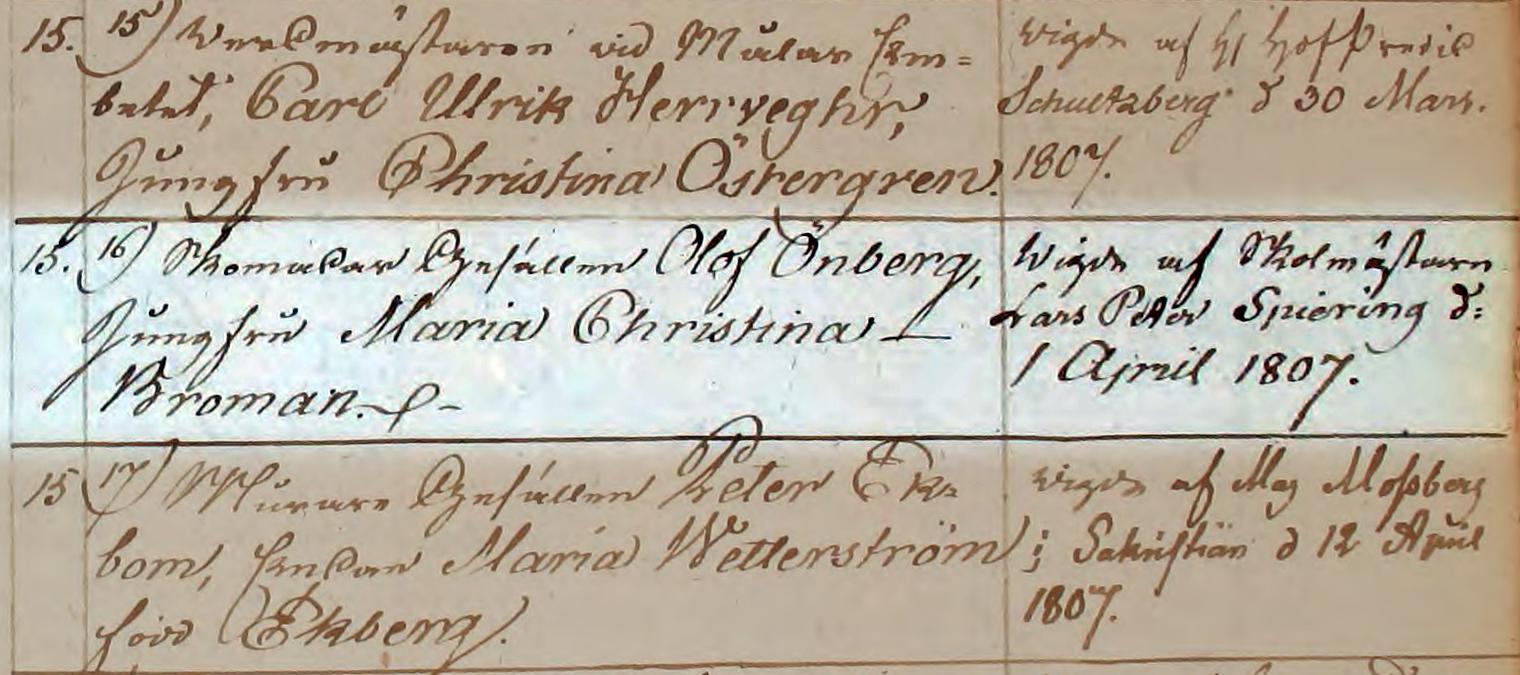 15. 15) Werckmästaren vid Målar Em=
betet, Carl Ulrik Herrveghr,
Jungfru Christina Östergren.
wigde af H HofPredic
Schutzberg d 30 Mars.
1807.
15. 16) Skomakar Gesällen Olof Önberg,
Jungfru Maria Christina —
Broman.
Wigde af Skolmästaren
Lars Peter Spiering d:
1 April 1807.
15 17) Murare Gesällen Peter Ek=
bom, Enckan Maria Wetterström
född Ekberg.
wigde af Mag Mossberg
i Sakristian d 12 April
1807.